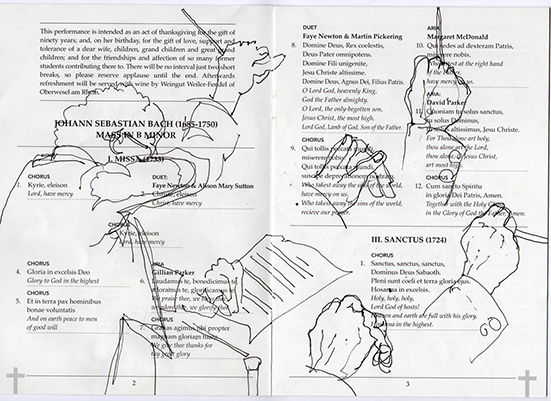 This performance is intended as an act of thanksgiving for the gift of
ninety years; and, on her birthday, for the gift of love, support and
tolerance of a dear wife, children, grand children and great grand
children; and for the friendships and affection of so many former
students contributing there to. There will be no interval just two short
breaks, so please reserve applause until the end. Afterwards
refreshment will be served with wine by Weingut Weiler-Fendel of
Oberwesel am Rhein.
JOHANN SEBASTIAN BACH (1685-1750)
MASS IN B MINOR
I. MISSA (1733)
CHORUS
1. Kyrie, eleison
Lord, have mercy
DUET:
Faye Newton & Alison Mary Sutton
2. Christe, eleison
Christ, have mercy
CHORUS
3. Kyrie, eleison
Lord, have mercy
CHORUS
4. Gloria in excelsis Deo
Glory to God in the highest
CHORUS
5. Et in terra pax hominibus
bonae voluntatis
And on earth peace to men
of good will
ARIA
Gillian Parker
6. Laudamus te, benedicimus te
adoramus te, glorificamus te
We praise thee, we bless thee
we adore thee, we glorify thee
CHORUS
7. Gratias agimus tibi propter
magnam gloriam tuam
We give thee thanks for
thy great glory
2
DUET
Faye Newton & Martin Pickering
8. Domine Deus, Rex coelestis,
Deus Pater omnipotens.
Domine Fili unigenite,
Jesu Christe altissime.
Domine Deus, Agnus Dei, Filius Patris.
O Lord God, heavenly King,
God the Father almighty.
O Lord, the only-begotten son,
Jesus Christ, the most high.
Lord God, Lamb of God, Son of the Father.
CHORUS
9. Qui tollis peccata mundi
miserere nobis.
Qui tollis peccata mundi,
suscipe deprecationem nostram.
Who takest away the sins of the world,
have mercy on us.
Who takest away the sins of the world,
recieve our prayer.
ARIA
Margaret McDonald
10. Qui sedes ad dexteram Patris,
miserere nobis.
Who sittest at the right hand
of the Father,
have mercy on us.
ARIA:
David Parker
11. Quoniam tu solus sanctus,
tu solus Dominus,
tu solus altissimus, Jesu Christe.
For Thou alone art holy,
thou alone art the Lord,
thou alone, O Jesus Christ,
art most high.
CHORUS
12. Cum sancto Spiritu
in gloria Dei Patris, Amen.
Together with the Holy Ghost
in the Glory of God the Father, Amen.
III. SANCTUS (1724)
CHORUS
1. Sanctus, sanctus, sanctus,
Dominus Deus Sabaoth.
Pleni sunt coeli et terra gloria ejus.
Hosanna in excelsis.
Holy, holy, holy,
Lord God of hosts!
Heaven and earth are full with his glory.
Hosanna in the highest.
3